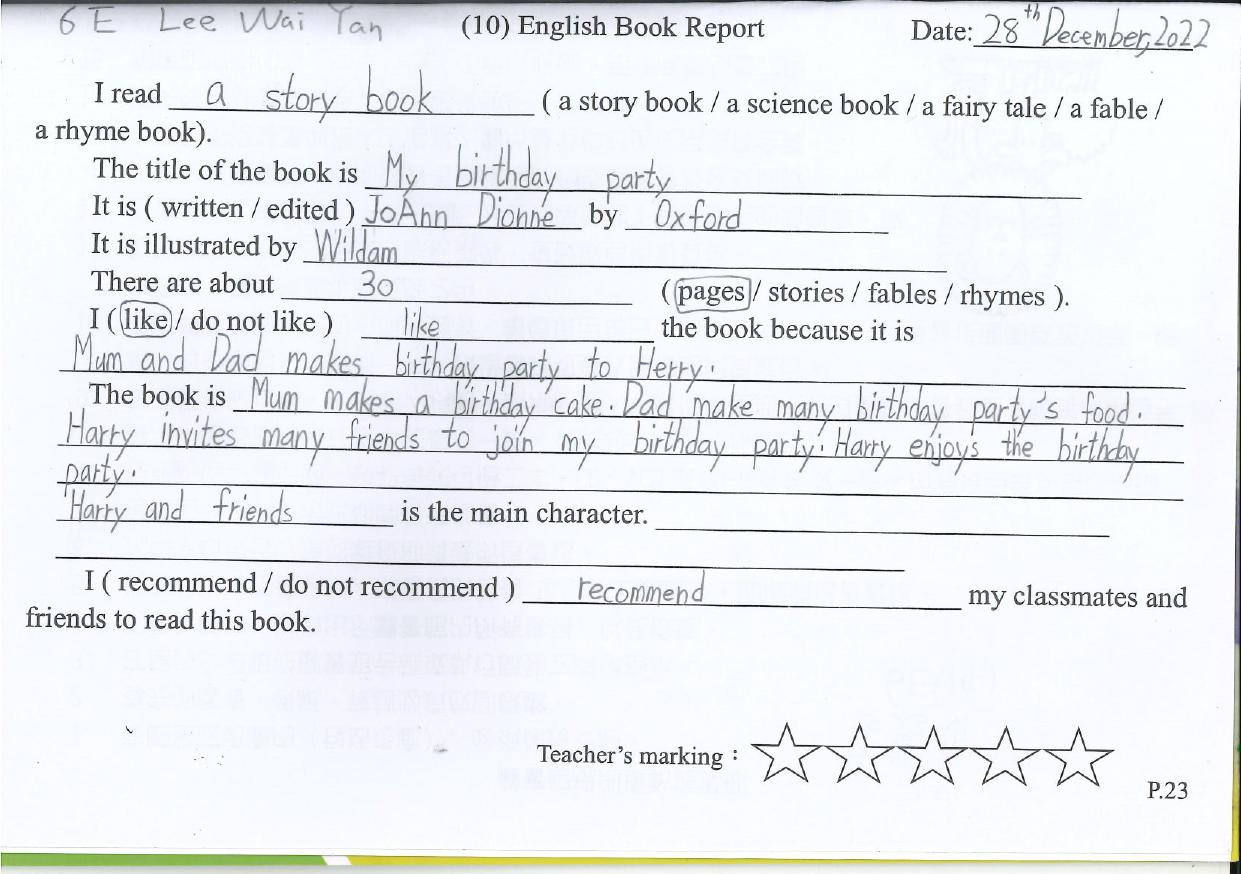 6 E Lee Wai Yan (10) English Book Report Date: 28th December, 2022
I read a story book ( a story book / a science book / a fairy tale / a fable /
a rhyme book).
The title of the book is My birthday party
It is ( written / edited ) JoAnn Dionne by Oxford
It is illustrated by Wildam
There are about 30 ( pages / stories / fables / rhymes ).
I ( like / do not like ) like the book because it is
Mum and Dad makes birthday party to Herry.
The book is Mum makes a birthday cake. Dad make many birthday party's food.
Harry invites many friends to join my birthday party. Harry enjoys the birthday
party.
Harry and friends is the main character.
I ( recommend / do not recommend ) recommend my classmates and
friends to read this book.
Teacher's marking :
P.23